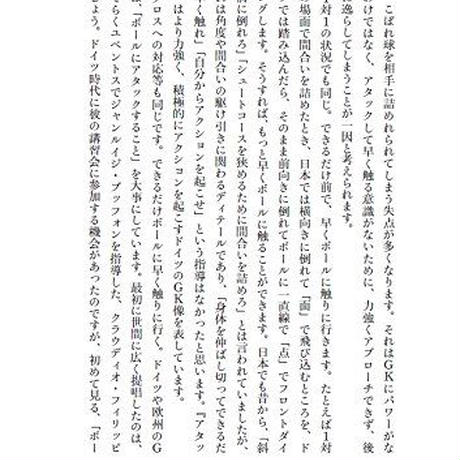 こぼれ球を相手に詰められてしまう失点が多くなります。それはGKにパワーがな
けではなく、アタックして早く触る意識がないために、力強くアプローチできず、後
逸らしてしまうことが一因と考えられます。
1対1の状況でも同じ。できるだけ前で、早くボールに触りに行きます。たとえば1対
の場面で間合いを詰めたとき、日本では横向きに倒れて「面」で飛び込むところを、ド
では踏み込んだら、そのまま前向きに倒れてボールに一直線で「点」でフロントダイ
グします。そうすれば、もっと早くボールに触ることができます。日本でも昔から、「斜
前に倒れろ」「シュートコースを狭めるために間合いを詰めろ」とは言われていましたが、
は角度や間合いの駆け引きに関わるディテールであり、「身体を伸ばし切ってできるだ
早く触れ」「自分からアクションを起こせ」という指導はなかったと思います。『アタッ
はより力強く、積極的にアクションを起こすドイツのGK像を表しています。
ロスへの対応等も同じです。できるだけボールに早く触りに行く。ドイツや欧州のG
、「ボールにアタックすること」を大事にしています。最初に世間に広く提唱したのは、
らくユベントスでジャンルイジ・ブッフォンを指導した、クラウディオ・フィリッピ
ょう。ドイツ時代に彼の講習会に参加する機会があったのですが、初めて見る、「ボー